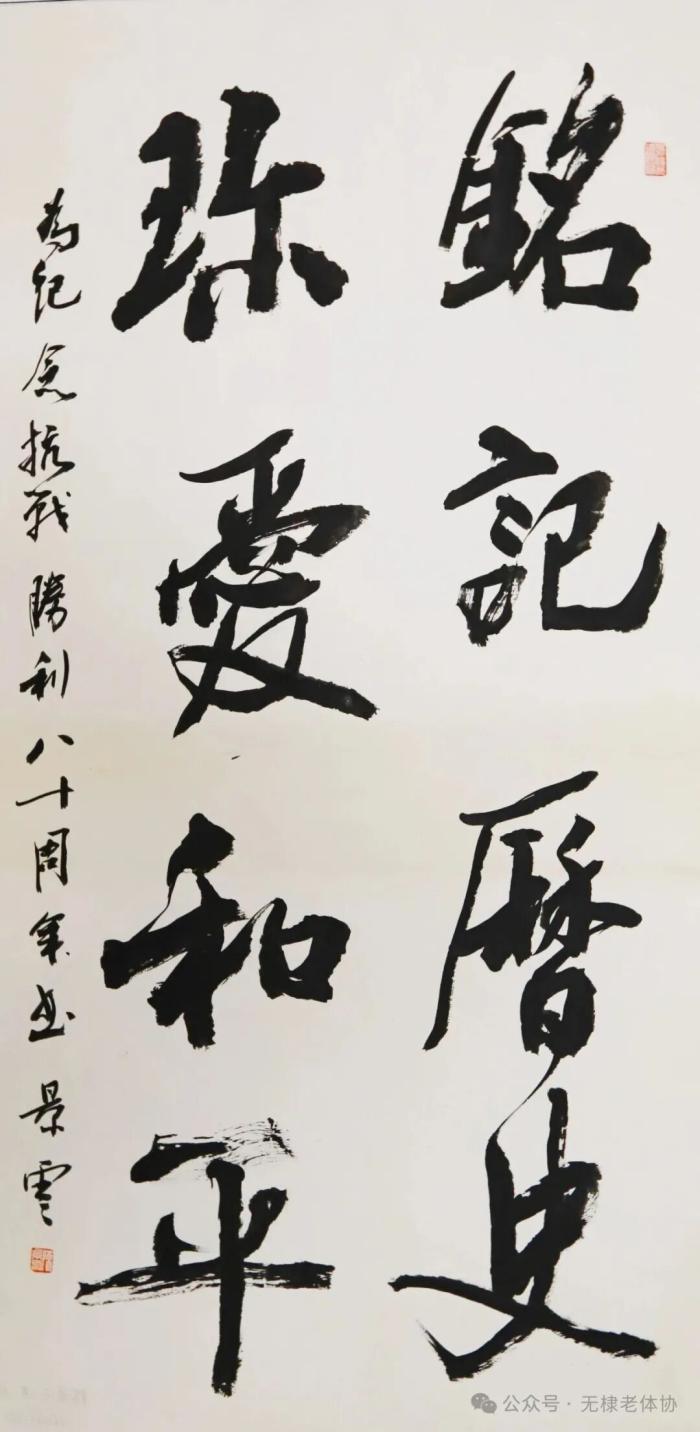 銘記曆史
珎愛和平
为纪念抗战勝利八十周年书 景雲
公众号·无棣老体协